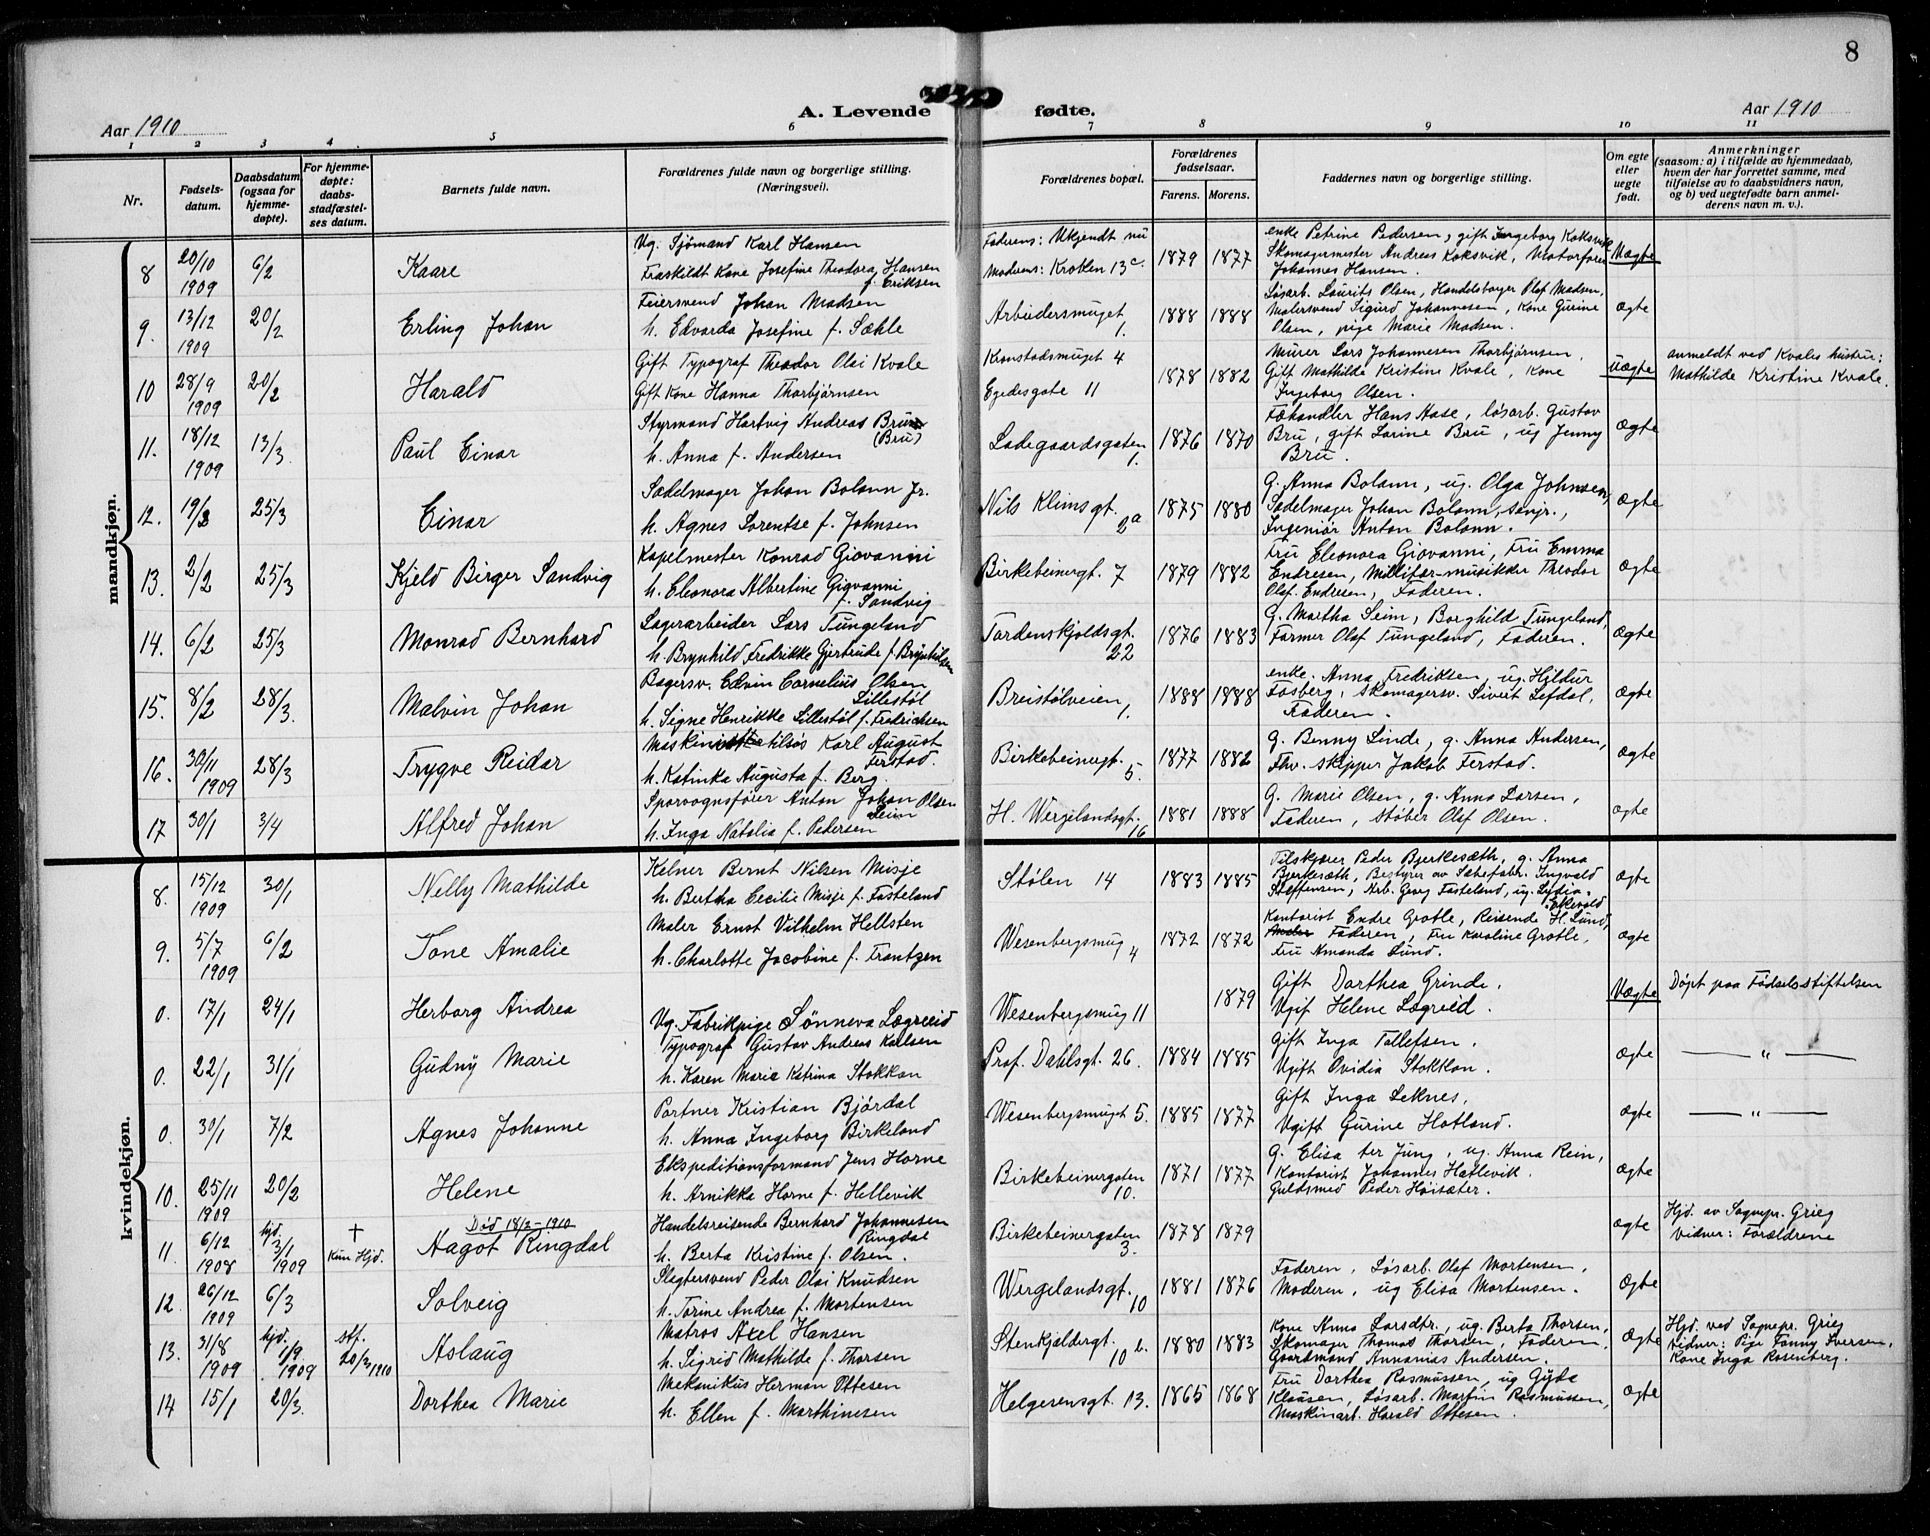 8
A. Levende fødte.
Aar 1910
Aar 1910
1 2 3 4 5 6 7 8 9 10 11
Nr.
Fødsels-
datum.
Daabsdatum
(ogsaa for
hjemme-
døpte).
For hjemme-
døpte:
daabs-
stadfæstel-
ses datum.
Barnets fulde navn.
Forældrenes fulde navn og borgerlige stilling.
(Næringsvei).
Forældrenes bopæl.
Forældrenes
fødselsaar.
Farens. Morens.
Faddernes navn og borgerlige stilling.
Om egte
eller
uegte
født.
Anmerkninger
(saasom: a) i tilfælde av hjemmedaab,
hvem der har forrettet samme, med
tilføielse av to daabsvidners navn,
og b) ved uegtefødte barn anmel-
derens navn m. v.).
mandkjøn.
8 20/10 1909 6/2 Kaare
Ug. Sjømand Karl Hansen
Fraskildt Kone Josefine Theodora Hansen
f. Eriksen
Faderens: Ukjendt nu
Moderens: Kroken 13c.
1879 1877
enke Petrine Pedersen, gift Ingeborg Koksvik
Skomagermester Andreas Koksvik, Motorfører
Johannes Hansen.
Uægte
9. 13/12 1909 20/2 Erling Johan
Feiersvend Johan Madsen
h. Edvarda Josefine f. Sækle
Arbeidersmuget
1.
1888 1888
Løsarb. Laurits Olsen, Handelsborger Olaf Madsen,
Malersvend Sigurd Johannesen, Kone Gurine
Olsen, pige Marie Madsen.
ægte
10 28/9 1909 20/2 Harald
Gift Typograf Theodor Olai Kvale
Gift Kone Hanna Thorbjørnsen
Kronstadsmuget 4
Egedesgate 11
1878 1882
Murer Lars Johannesen Thorbjørnsen,
Gift Mathilde Kristine Kvale, Kone
Ingeborg Olsen.
Uægte
anmeldt ved Kvales hustru:
Mathilde Kristine Kvale.
11. 18/12 1909 13/3. Paul Einar
Styrmand Hartvig Andreas Brun
(Bru)
h. Anna f. Andersen
Ladegaardsgaten
1.
1876 1870
Fæhandler Hans Aase, løsarb. Gustav
Bru, gift Larine Bru, ug Jenny
Bru.
Ægte
12. 19/2 25/3 Einar
Sadelmager Johan Bolann Jr.
h. Agnes Lorentse f. Johnsen
Nils Klimsgt.
2a
1875 1880
G. Anna Bolann, ug. Olga Johnsen,
Sadelmager Johan Bolann, senjr.,
Ingeniør Anton Bolann.
Ægte
13. 2/2 25/3 Kjeld Birger Sandvig
Kapelmester Konrad Giovanni
h. Eleonora Albertine Giovanni
f. Sandvig
Birkebeinergt. 7
1879 1882
Fru Eleonora Giovanni, Fru Emma
Endresen, Militær-musikker Theodor
Olaf Endresen, Faderen.
Ægte
14. 6/2 25/3 Monrad Bernhard
Lagerarbeider Lars Tungeland
h. Brynhild Fredrikke Gjertrude f. Brynhilsen
Tordenskjoldsgt.
22
1876 1883
G. Martha Seim, Borghild Tungeland,
Farmer Olaf Tungeland, Faderen.
Ægte
15. 8/2 28/3. Malvin Johan
Bagersv. Edvin Cornelius Olsen
Lillestøl
h. Signe Henrikke Lillestøl f. Fredrichsen
Breistølveien
1.
1888 1888
enke. Anna Fredriksen, ug. Hjldur
Fosberg, skomagersv. Sivert Lefdal,
Faderen.
Ægte
16. 30/11 1909 28/3 Trygve Reidar
tilsøs Karl August
Ferstad.
h. Katinka Augusta f. Berg.
Birkebeinergt.
5.
1877 1882
g. Benny Linde, g. Anna Andersen,
Fhv. skipper Jakob Ferstad.
Ægte
17 30/1 3/4 Alfred Johan
Sporvognsfører Anton Johan Olsen
Seim
h. Inga Natalia f. Pedersen
H. Wergelandsgt.
16
1881 1888
G. Marie Olsen, g. Anna Larsen,
Faderen, støber Olaf Olsen.
ægte
kvindekjøn.
8. 15/12 1909 30/1 Nelly Mathilde
Kelner Bernt Nilsen Misje
h. Bertha Cecilie Misje f. Fasteland
Stølen 14
1883 1885
Tilskjærer Peder Bjerkesæth, g. Anna
Bjerkesæth, Bestyrer av Sæbefabr. Ingvald
Steffensen, Arb. Georg Fasteland, ug. Lydia
Ekevold
ægte
9. 5/7 1909 6/2 Tone Amalie
Maler Ernst Vilhelm Hellsten
h. Charlotte Jacobine f. Frantzen
Wesenbergsmug
4
1872 1872
Kontorist Endre Grotle, Reisende H. Lund,
Maler Faderen, Fru Karoline Grotle,
Fru Amanda Lund.
ægte
0. 17/1 24/1 Herborg Andrea
Ug. Fabrikpige Sønneva Lægreid
Wesenbergsmug 11
1879
Gift Dorthea Grinde.
Ugif Helene Lægreid.
Uægte
Døpt paa Fødselsstiftelsen
0. 22/1 31/1 Gudny Marie
Typograf Gustav Andreas Karlsen
h. Karen Marie Katrina Stokkan
Prof. Dahlsgt. 26.
1884 1885
Gift Inga Tollefsen.
Ugift Ovidia Stokkan.
ægte
— " —
0. 30/1 7/2 Agnes Johanne
Portner Kristian Bjørdal
h. Anna Ingeborg Birkeland
Wesenbergsmuget 5.
1885 1877
Gift Inga Leknes.
Ugift Gurine Hatland.
ægte
— " —
10. 25/11 1909 20/2 Helene
Ekspeditionsformand Jens Horne
h. Arnikka Horne f. Hellevik
Birkebeinergaten
10.
1871 1877
G. Elisa ter Jung, ug Anna Rein,
Kontorist Johannes Hatlevik.
Guldsmed Peder Høisæter.
ægte
11. 6/12 1908 hjd. 3/1 1909 † Kun Hjd.
Død 18/2-1910
Aagot Ringdal
Handelsreisende Bernhard Johannesen
Ringdal
h. Berta Kristine f. Olsen.
Birkebeinergaten
3.
1878 1879
ægte
Hjd. av Sognepr. Grieg
Vidner: Forældrene
12. 26/12 1909 6/3 Solveig
Slegtersvend Peder Olai Knudsen
h. Torine Andrea f. Mortensen
Wergelandsgt.
10
1881 1876
Faderen, Løsarb. Olaf Mortensen,
Moderen, ug Elisa Mortensen.
Ægte
13. 31/8 1909 hjd. 1/9 1909 stf. 20/3 1910 Aslaug
Matros Axel Hansen
h. Sigrid Mathilde f. Thorsen
Stenkjeldergt.
10 b.
1880 1883
Kone Anna Larsdtr., ug. Berta Thorsen,
Skomager Thomas Thorsen, Faderen,
Gaardmand Annanias Andersen.
Ægte
Hjd. ved Sognepr. Grieg
Vidner: Pige Fanny Iversen,
Kone Inga Rosenberg.
14 15/1 20/3. Dorthea Marie
Mekanikus Herman Ottesen
h. Ellen f. Marthinesen
Helgesensgt. 13.
1865 1868
Fru Dorthea Rasmussen, ug Gyda
Klausen, Løsarb. Martin Rasmussen,
Maskinarb. Harald Ottesen.
Ægte